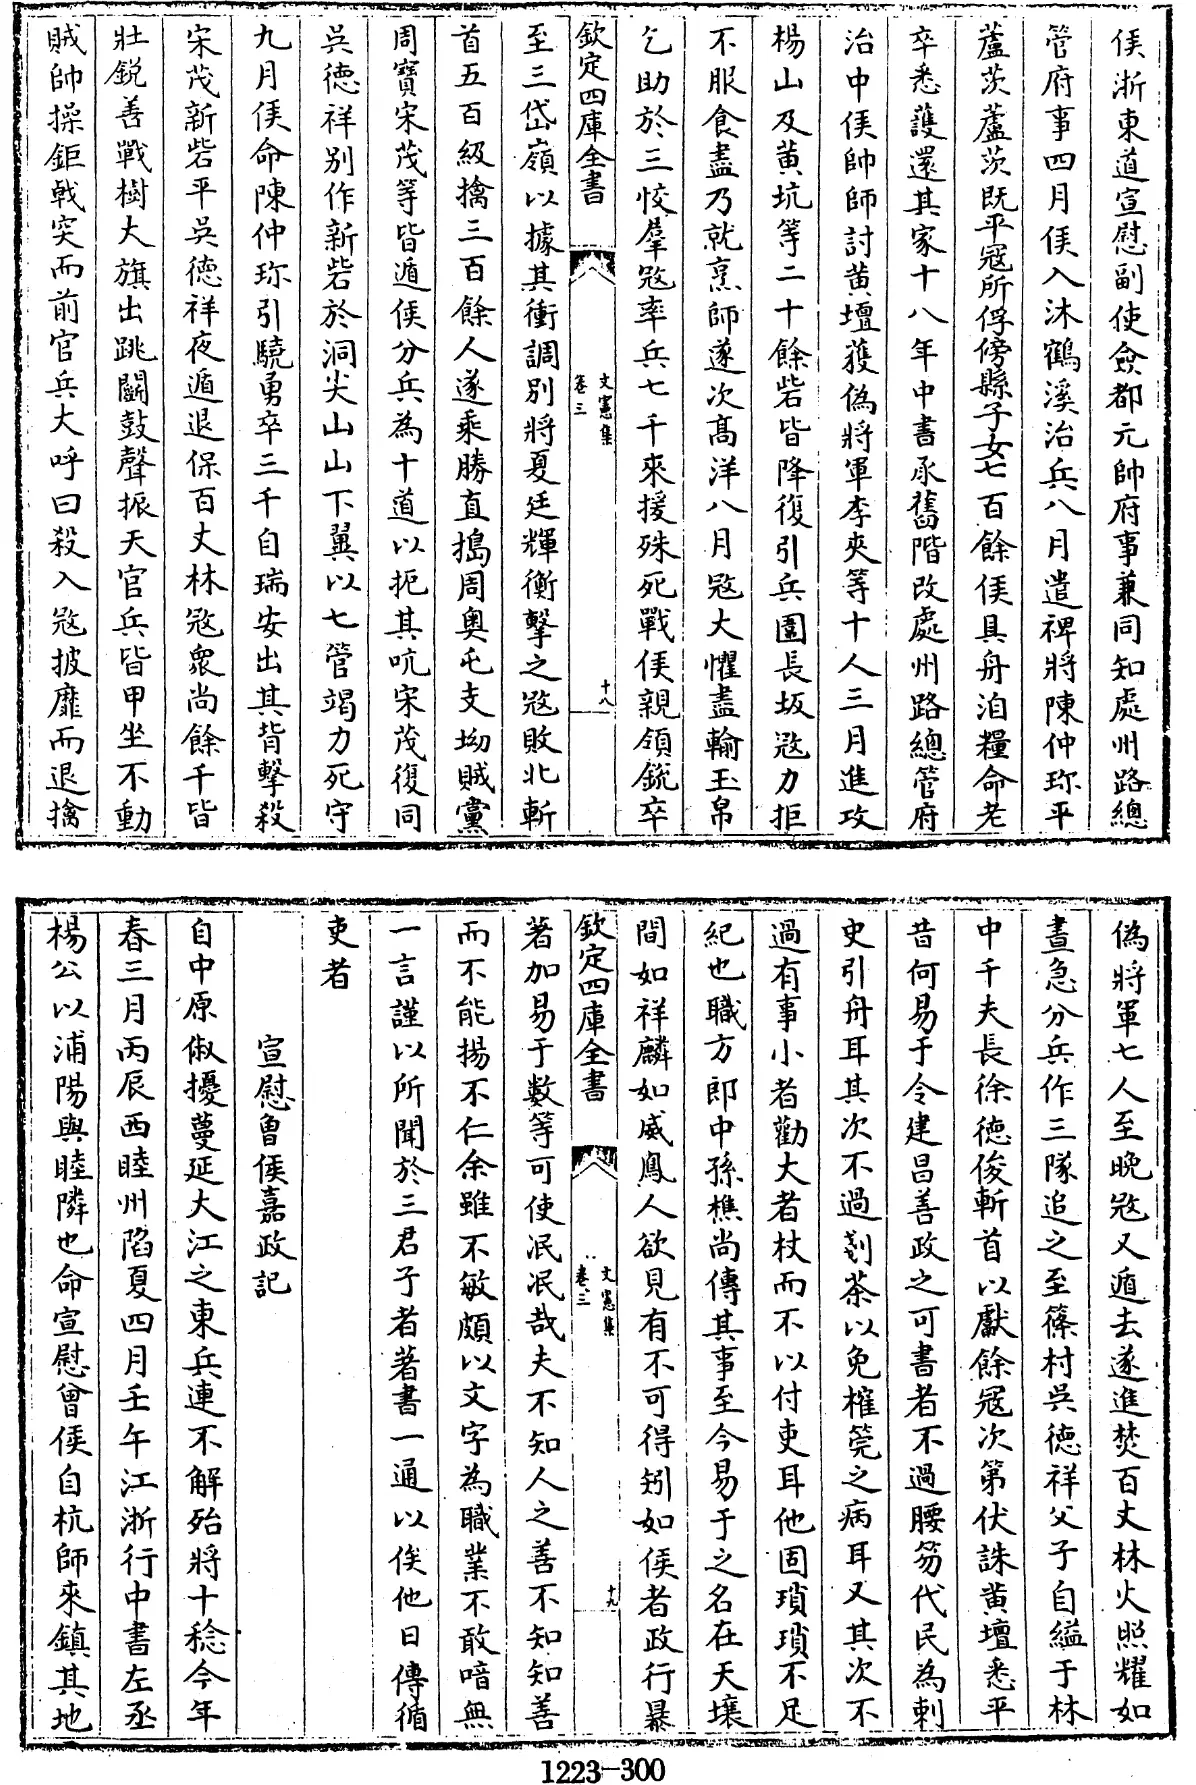 侯浙東道宣慰副使僉都元帥府事兼同知處州路總
管府事四月侯入沐鶴溪治兵八月遣裨將陳仲珎平
蘆茨蘆茨既平寇所俘傍縣子女七百餘侯具舟洎糧命老
卒悉護還其家十八年中書承舊階改處州路總管府
治中侯帥師討黄壇獲偽將軍李夾等十人三月進攻
楊山及黄坑等二十餘砦皆降復引兵圍長坂寇力拒
不服食盡乃就烹師遂次髙洋八月寇大懼盡輸玉帛
乞助於三恔羣寇率兵七千來援殊死戰侯親領銳卒
欽定四庫全書
文憲集
卷三
十八
至三岱嶺以據其衝調別將夏廷輝衡擊之寇敗北斬
首五百級擒三百餘人遂乘勝直搗周奥屯支坳賊黨
周寶宋茂等皆遁侯分兵為十道以扼其吭宋茂復同
吳德祥別作新砦於洞尖山山下翼以七管竭力死守
九月侯命陳仲珎引驍勇卒三千自瑞安出其背擊殺
宋茂新砦平吳德祥夜遁退保百丈林寇衆尚餘千皆
壯銳善戰樹大旗出跳鬭鼓聲振天官兵皆甲坐不動
賊帥操鉅戟突而前官兵大呼曰殺入寇披靡而退擒
偽將軍七人至晚寇又遁去遂進焚百丈林火照耀如
晝急分兵作三隊追之至篠村吳德祥父子自縊于林
中千夫長徐德俊斬首以獻餘寇次第伏誅黄壇悉平
昔何易于令建昌善政之可書者不過腰笏代民為刺
史引舟耳其次不過剗茶以免榷筦之病耳又其次不
過有事小者勸大者杖而不以付吏耳他固瑣瑣不足
紀也職方郎中孫樵尚傳其事至今易于之名在天壤
間如祥麟如威鳳人欲見有不可得矧如侯者政行暴
欽定四庫全書
文憲集
卷三
十九
著加易于數等可使泯泯哉夫不知人之善不知知善
而不能揚不仁余雖不敏頗以文字為職業不敢喑無
一言謹以所聞於三君子者著書一通以俟他日傳循
吏者
宣慰曾侯嘉政記
自中原俶擾蔓延大江之東兵連不解殆將十稔今年
春三月丙辰西睦州陷夏四月壬午江浙行中書左丞
楊公以浦陽與睦隣也命宣慰曾侯自杭師來鎮其地
1223-300